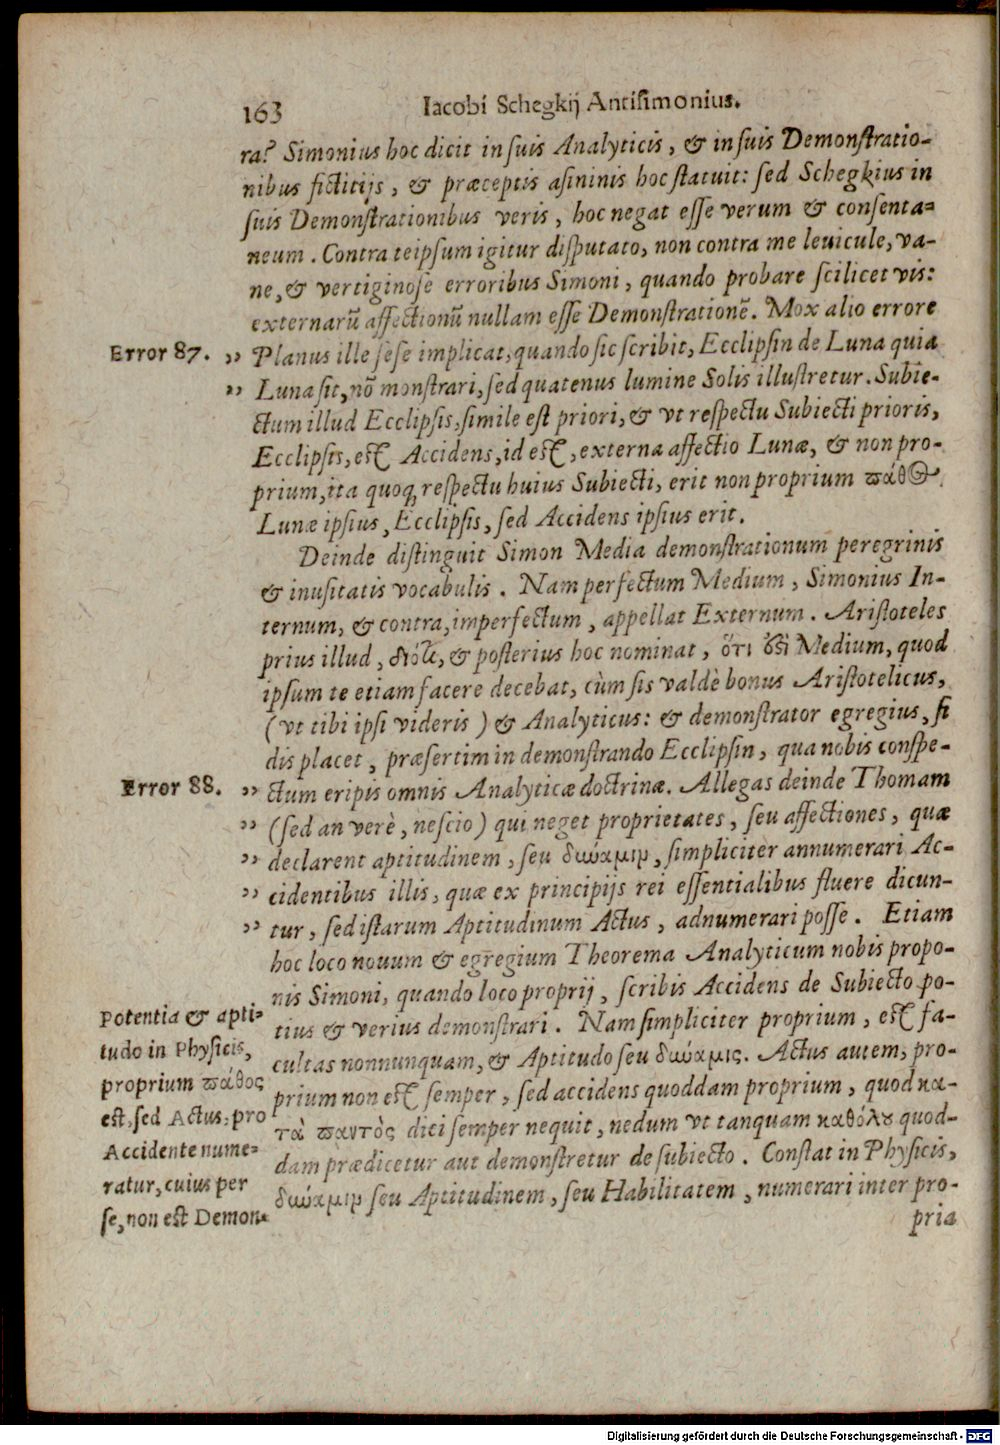 163 Iacobi Schegkij Antisimonius.
ra? Simonius hoc dicit in suis Analyticis, & in suis Demonstratio-
nibus fictitijs, & præceptis asininis hoc statuit: sed Schegkius in
suis Demonstrationibus veris, hoc negat esse verum & consenta-
neum. Contra teipsum igitur disputato, non contra me leuicule, va-
ne, & vertiginose erroribus Simoni, quando probare scilicet vis:
externarũ affectionũ nullam esse Demonstrationẽ. Mox alio errore
Error 87. ,, Planus ille sese implicat, quando sic scribit, Ecclipsin de Luna quia
,, Luna sit, nõ monstrari, sed quatenus lumine Solis illustretur. Subie-
ctum illud Ecclipsis, simile est priori, & vt respectu Subiecti prioris,
Ecclipsis, est Accidens, id est, externa affectio Lunæ, & non pro-
prium, ita quoq; respectu huius Subiecti, erit non proprium πάθος
Lunæ ipsius, Ecclipsis, sed Accidens ipsius erit.
Deinde distinguit Simon Media demonstrationum peregrinis
& inusitatis vocabulis. Nam perfectum Medium, Simonius In-
ternum, & contra, imperfectum, appellat Externum. Aristoteles
prius illud, διότι, & posterius hoc nominat, ὅτι δεῖ Medium, quod
ipsum te etiam facere decebat, cùm sis valdè bonus Aristotelicus,
(vt tibi ipsi videris) & Analyticus: & demonstrator egregius, si
dis placet, præsertim in demonstrando Ecclipsin, qua nobis conspe-
Error 88. ,, ctum eripis omnis Analyticæ doctrinæ. Allegas deinde Thomam
,, (sed an verè, nescio) qui neget proprietates, seu affectiones, quæ
,, declarent aptitudinem, seu δύναμιν, simpliciter annumerari Ac-
,, cidentibus illis, quæ ex principijs rei essentialibus fluere dicun-
,, tur, sed istarum Aptitudinum Actus, adnumerari posse. Etiam
hoc loco nouum & egregium Theorema Analyticum nobis propo-
nis Simoni, quando loco proprij, scribis Accidens de Subiecto po-
tius & verius demonstrari. Nam simpliciter proprium, est fa-
cultas nonnunquam, & Aptitudo seu δύναμις. Actus autem, pro-
prium non est semper, sed accidens quoddam proprium, quod κα-
τὰ παντὸς dici semper nequit, nedum vt tanquam καθόλου quod-
dam prædicetur aut demonstretur de subiecto. Constat in Physicis,
δύναμιν seu Aptitudinem, seu Habilitatem, numerari inter pro-
pria
Potentia & apti-
tudo in Physicis,
proprium πάθος
est, sed Actus, pro
Accidente nume-
ratur, cuius per
se, non est Demon-
Digitalisierung gefördert durch die Deutsche Forschungsgemeinschaft - DFG